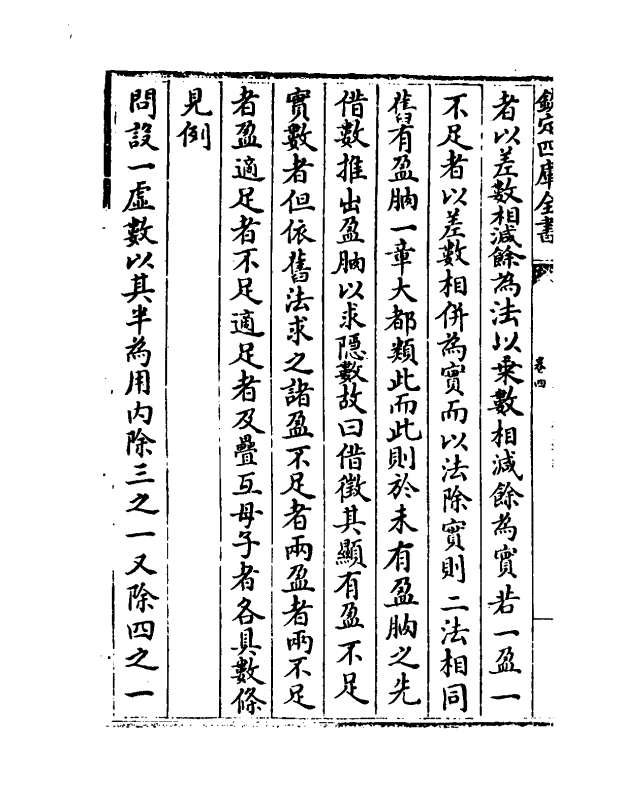 欽定四庫全書
卷四
者以差數相減餘為法以乗數相減餘為實若一盈一
不足者以差數相併為實而以法除實則二法相同
舊有盈朒一章大都類此而此則於未有盈朒之先
借數推出盈朒以求隱數故曰借徵其顯有盈不足
實數者但依舊法求之諸盈不足者兩盈者兩不足
者盈適足者不足適足者及疊互母子者各具數條
見例
問設一虛數以其半為用内除三之一又除四之一